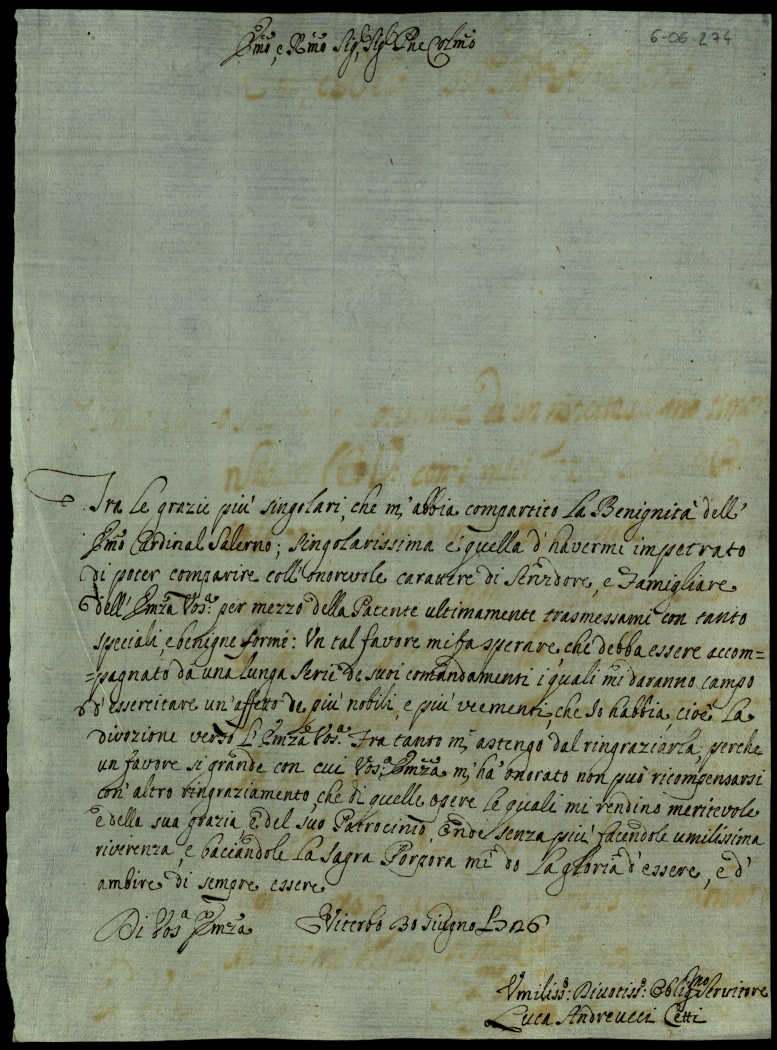 6-06-274
Em̃o, e Rm̃o Sig.r Sig.r Pñe Colmõ
Tra le grazie più singolari, che m'abbia compartito la Benignità dell'
Em̃o Cardinal Salerno; singolarissima è quella d'havermi impetrato
di poter comparire coll'onorevole carattere di Servidore, e Famigliare
dell'Em̃za Vos.a per mezzo della Patente ultimamente trasmessami con tanto
speciali, e benigne forme: Un tal favore mi fa sperare, che debba essere accom=
=pagnato da una lunga serie de suoi comandamenti i quali mi daranno campo
d'essercitare un'affetto de più nobili, e più veementi, che Io habbia, cioè la
divozione verso L'Em̃za Vos.a Fra tanto m'astengo dal ringraziarla, perche
un favore si grande con cui Vos.a Em̃za m'ha onorato non può ricompensarsi
con'altro ringraziamento, che di quelle opere le quali mi rendino meritevole
e della sua grazia, e del suo Patrocinio, Onde senza più facendole umilissima
riverenza, e baciandole la Sagra Porpora mi do la gloria d'essere, e d'
ambire di sempre essere
Di Vos.a Em̃za Viterbo 30 Giugno
Vmiliss.o: Divotiss.o: Oblig.mo Servitore
Luca Andreucci Cetti